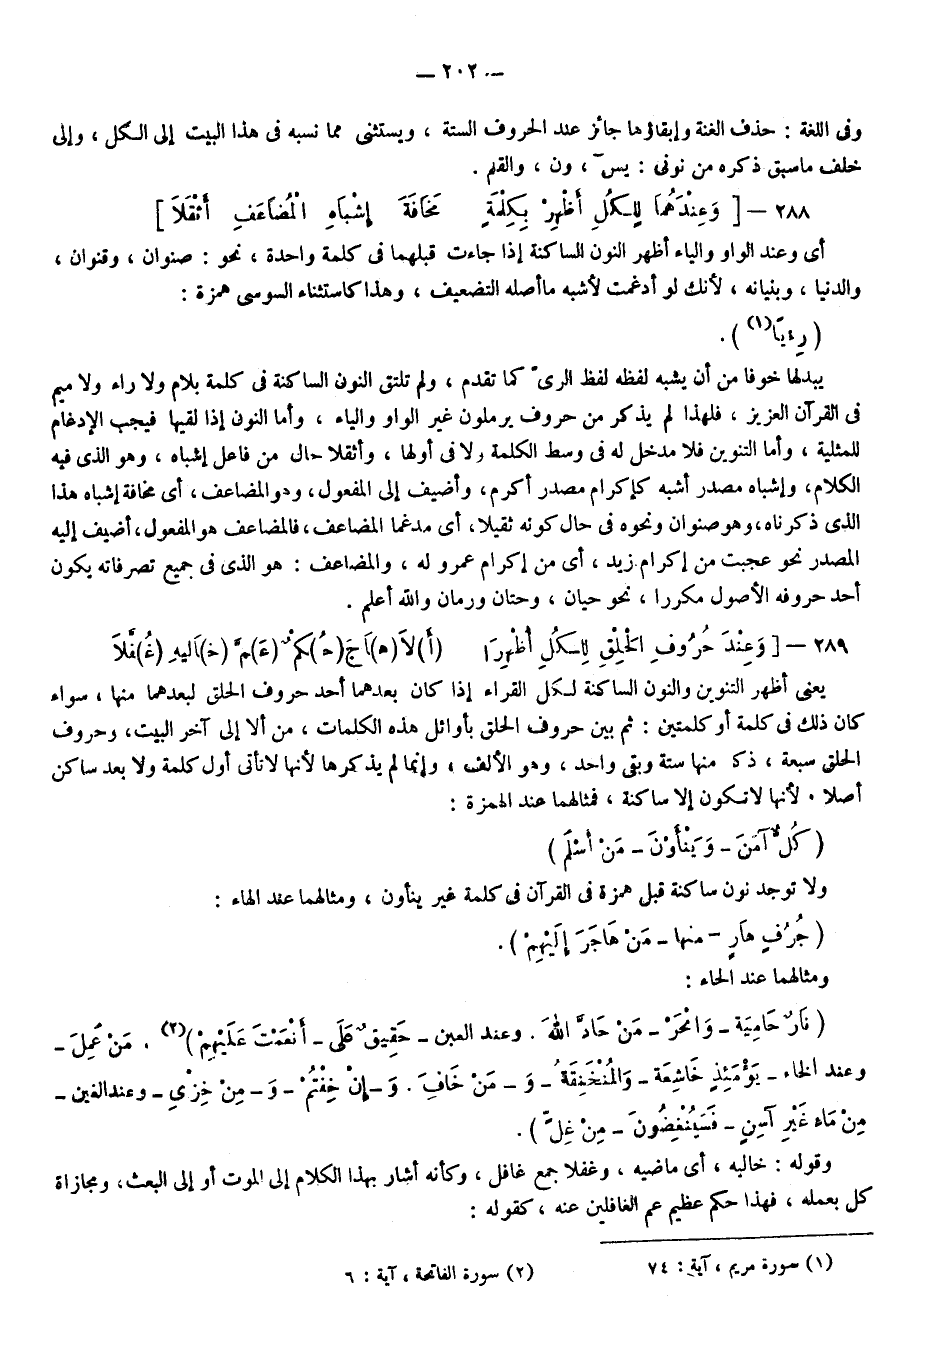 — ٢٠٢ —
وفى اللغة : حذف الغنة وإبقاؤها جائز عند الحروف الستة ، ويستثنى مما نسبه فى هذا البيت إلى الكل ، وإلى
خلف ماسبق ذكره من نونى : يسٓ ، ون ، والقلم .
٢٨٨ — [ وَعِنْدَهُمَا لِلكُلِّ أَظْهِرْ بِكِلْمَةٍ مَخَافَةَ إِشْبَاهِ الْمُضَاعَفِ أَثْقَلَا ]
أى وعند الواو والياء أظهر النون الساكنة إذا جاءت قبلهما فى كلمة واحدة ، نحو : صنوان ، وقنوان ،
والدنيا ، وبنيانه ، لأنك لو أدغمت لأشبه ماأصله التضعيف ، وهذا كاستثناء السوسى همزة :
( رِءْيًا(١) ) .
يبدلها خوفا من أن يشبه لفظه لفظ الرىّ كما تقدم ، ولم تلتق النون الساكنة فى كلمة بلام ولا راء ولا ميم
فى القرآن العزيز ، فلهذا لم يذكر من حروف يرملون غير الواو والياء ، وأما النون إذا لقيها فيجب الإدغام
للمثلية ، وأما التنوين فلا مدخل له فى وسط الكلمة ولا فى أولها ، وأثقلا حال من فاعل إشباه ، وهو الذى فيه
الكلام، وإشباه مصدر أشبه كإكرام مصدر أكرم، وأضيف إلى المفعول، وهو المضاعف، أى مخافة إشباه هذا
الذى ذكرناه، وهو صنوان ونحوه فى حال كونه ثقيلا، أى مدغما المضاعف، فالمضاعف هو المفعول، أضيف إليه
المصدر نحو عجبت من إكرام زيد ، أى من إكرام عمرو له ، والمضاعف : هو الذى فى جميع تصرفاته يكون
أحد حروفه الأصول مكررا ، نحو حيان ، وحتان ورمان والله أعلم .
٢٨٩ — [ وَعِنْدَ حُرُوفِ الحَلْقِ لِلكُلِّ أُظْهِرَا (أَ)لَا (هَ)اجَ (حُ)كْمٌ (عَ)مَّ (خَ)اليهِ (غُ)فَّلَا
يعنى أظهر التنوين والنون الساكنة لكل القراء إذا كان بعدهما أحد حروف الحلق لبعدهما منها ، سواء
كان ذلك فى كلمة أو كلمتين : ثم بين حروف الحلق بأوائل هذه الكلمات ، من ألا إلى آخر البيت، وحروف
الحلق سبعة ، ذكر منها ستة وبقى واحد ، وهو الألف ، وإنما لم يذكرها لأنها لاتأتى أول كلمة ولا بعد ساكن
أصلا . لأنها لاتكون إلا ساكنة ، فمثالهما عند الهمزة :
( كُلٌّ آمَنَ – وَيَنْأَوْنَ – مَنْ أَسْلَمَ )
ولا توجد نون ساكنة قبل همزة فى القرآن فى كلمة غير ينأون ، ومثالهما عند الهاء :
( جُرُفٍ هَارٍ – منها – مَنْ هَاجَرَ إِلَيْهِمْ ) .
ومثالهما عند الحاء :
( نَارٌ حَامِيَة – وَانْحَرْ – مَنْ حَادَّ اللهَ . وعند العين – حَقِيقٌ عَلَى – أَنْعَمْتَ عَلَيْهِمْ )(٢) . مَنْ عَمِلَ –
وعند الخاء – يَوْمَئِذٍ خَاشِعَة – وَالْمُنْخَنِقَةُ – وَ – مَنْ خَافَ . وَ – إِنْ خِفْتُمْ – وَ – مِنْ خِزْىِ – وعند الغين –
مِنْ مَاء غَيْرِ آسِنٍ – فَسَيُنْغِضُونَ – مِنْ غِلّ ) .
وقوله : خاليه ، أى ماضيه ، وغفلا جمع غافل ، وكأنه أشار بهذا الكلام إلى الموت أو إلى البعث، ومجازاة
كل بعمله ، فهذا حكم عظيم عم الغافلين عنه ، كقوله :
(١) سورة مريم ، آية : ٧٤ (٢) سورة الفاتحة ، آية : ٦